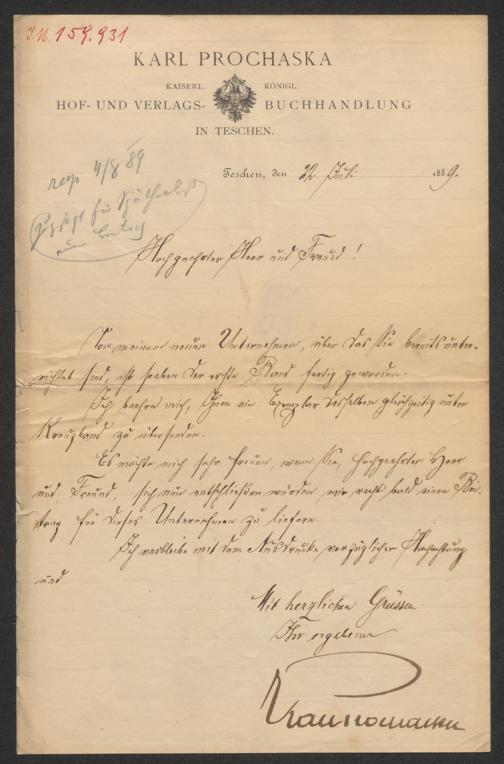 J.N. 159.931
KARL PROCHASKA
KAISERL. KÖNIGL.
HOF- UND VERLAGS- BUCHHANDLUNG
IN TESCHEN.
resp 4/8 89
Zugesagt für Spätherbst
Teschen, den 22. Juli 1889.
Hochgeehrter Herr und Freund!
Von meinem neuen Unternehmen, über das Sie bereits unter-
richtet sind, ist soeben der erste Band fertig geworden.
Ich beehre mich, Ihnen ein Exemplar desselben gleichzeitig unter
Kreuzband zu übersenden.
Es würde mich sehr freuen, wenn Sie, hochgeehrter Herr
und Freund, sich nun entschließen würden mir recht bald einen Bei-
trag für dieses Unternehmen zu liefern.
Ich verbleibe mit dem Ausdrucke vorzüglicher Hochachtung
und
Mit herzlichen Grüssen
Ihr ergebener